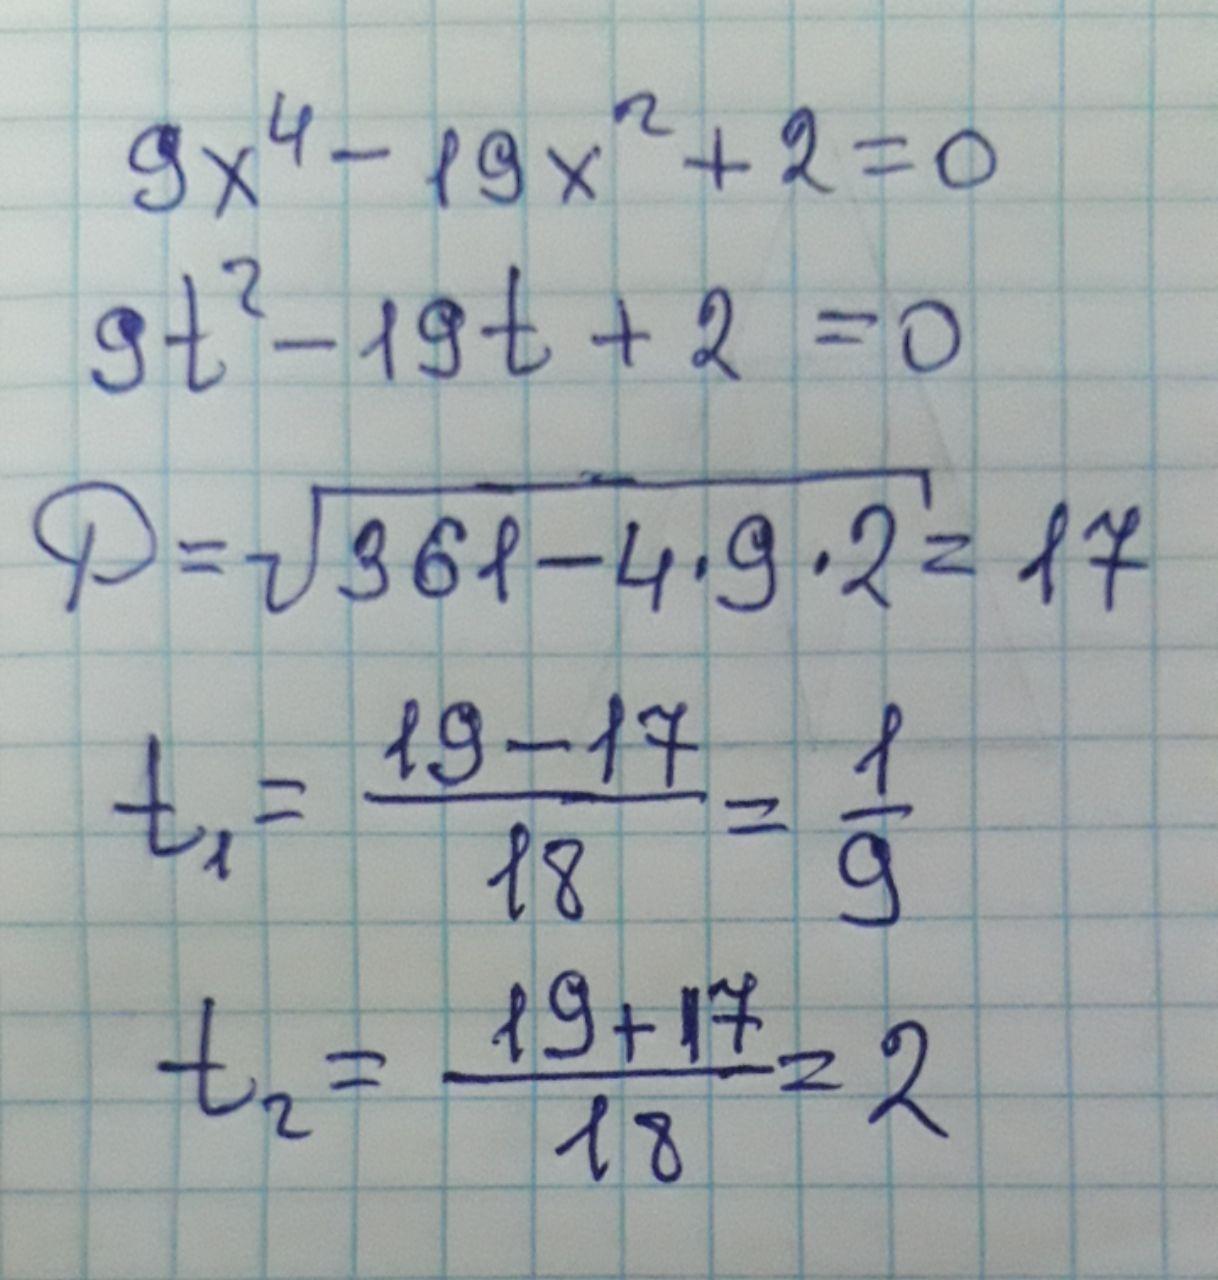 9x⁴ - 19x² + 2 = 0
9t² - 19t + 2 = 0
D = √361 - 4·9·2 = 17
t₁ = (19 - 17)/18 = 1/9
t₂ = (19 + 17)/18 = 2